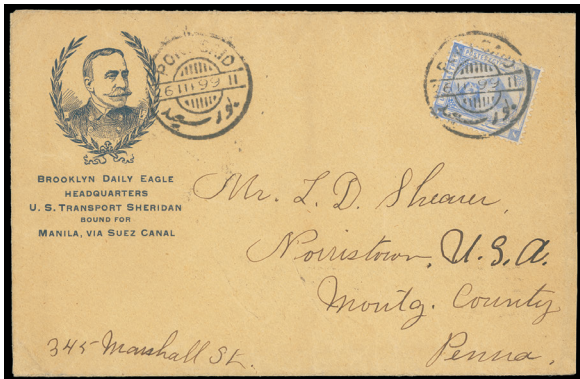 PORT-SAID
6 III 99 II
بورسعيد
PORT-SAID
6 III 99 II
بورسعيد
BROOKLYN DAILY EAGLE
HEADQUARTERS
U. S. TRANSPORT SHERIDAN
BOUND FOR
MANILA, VIA SUEZ CANAL
Mr. L. D. Shearer,
Norristown, U.S.A.
Montg. County
Penna.
345 Marshall St.